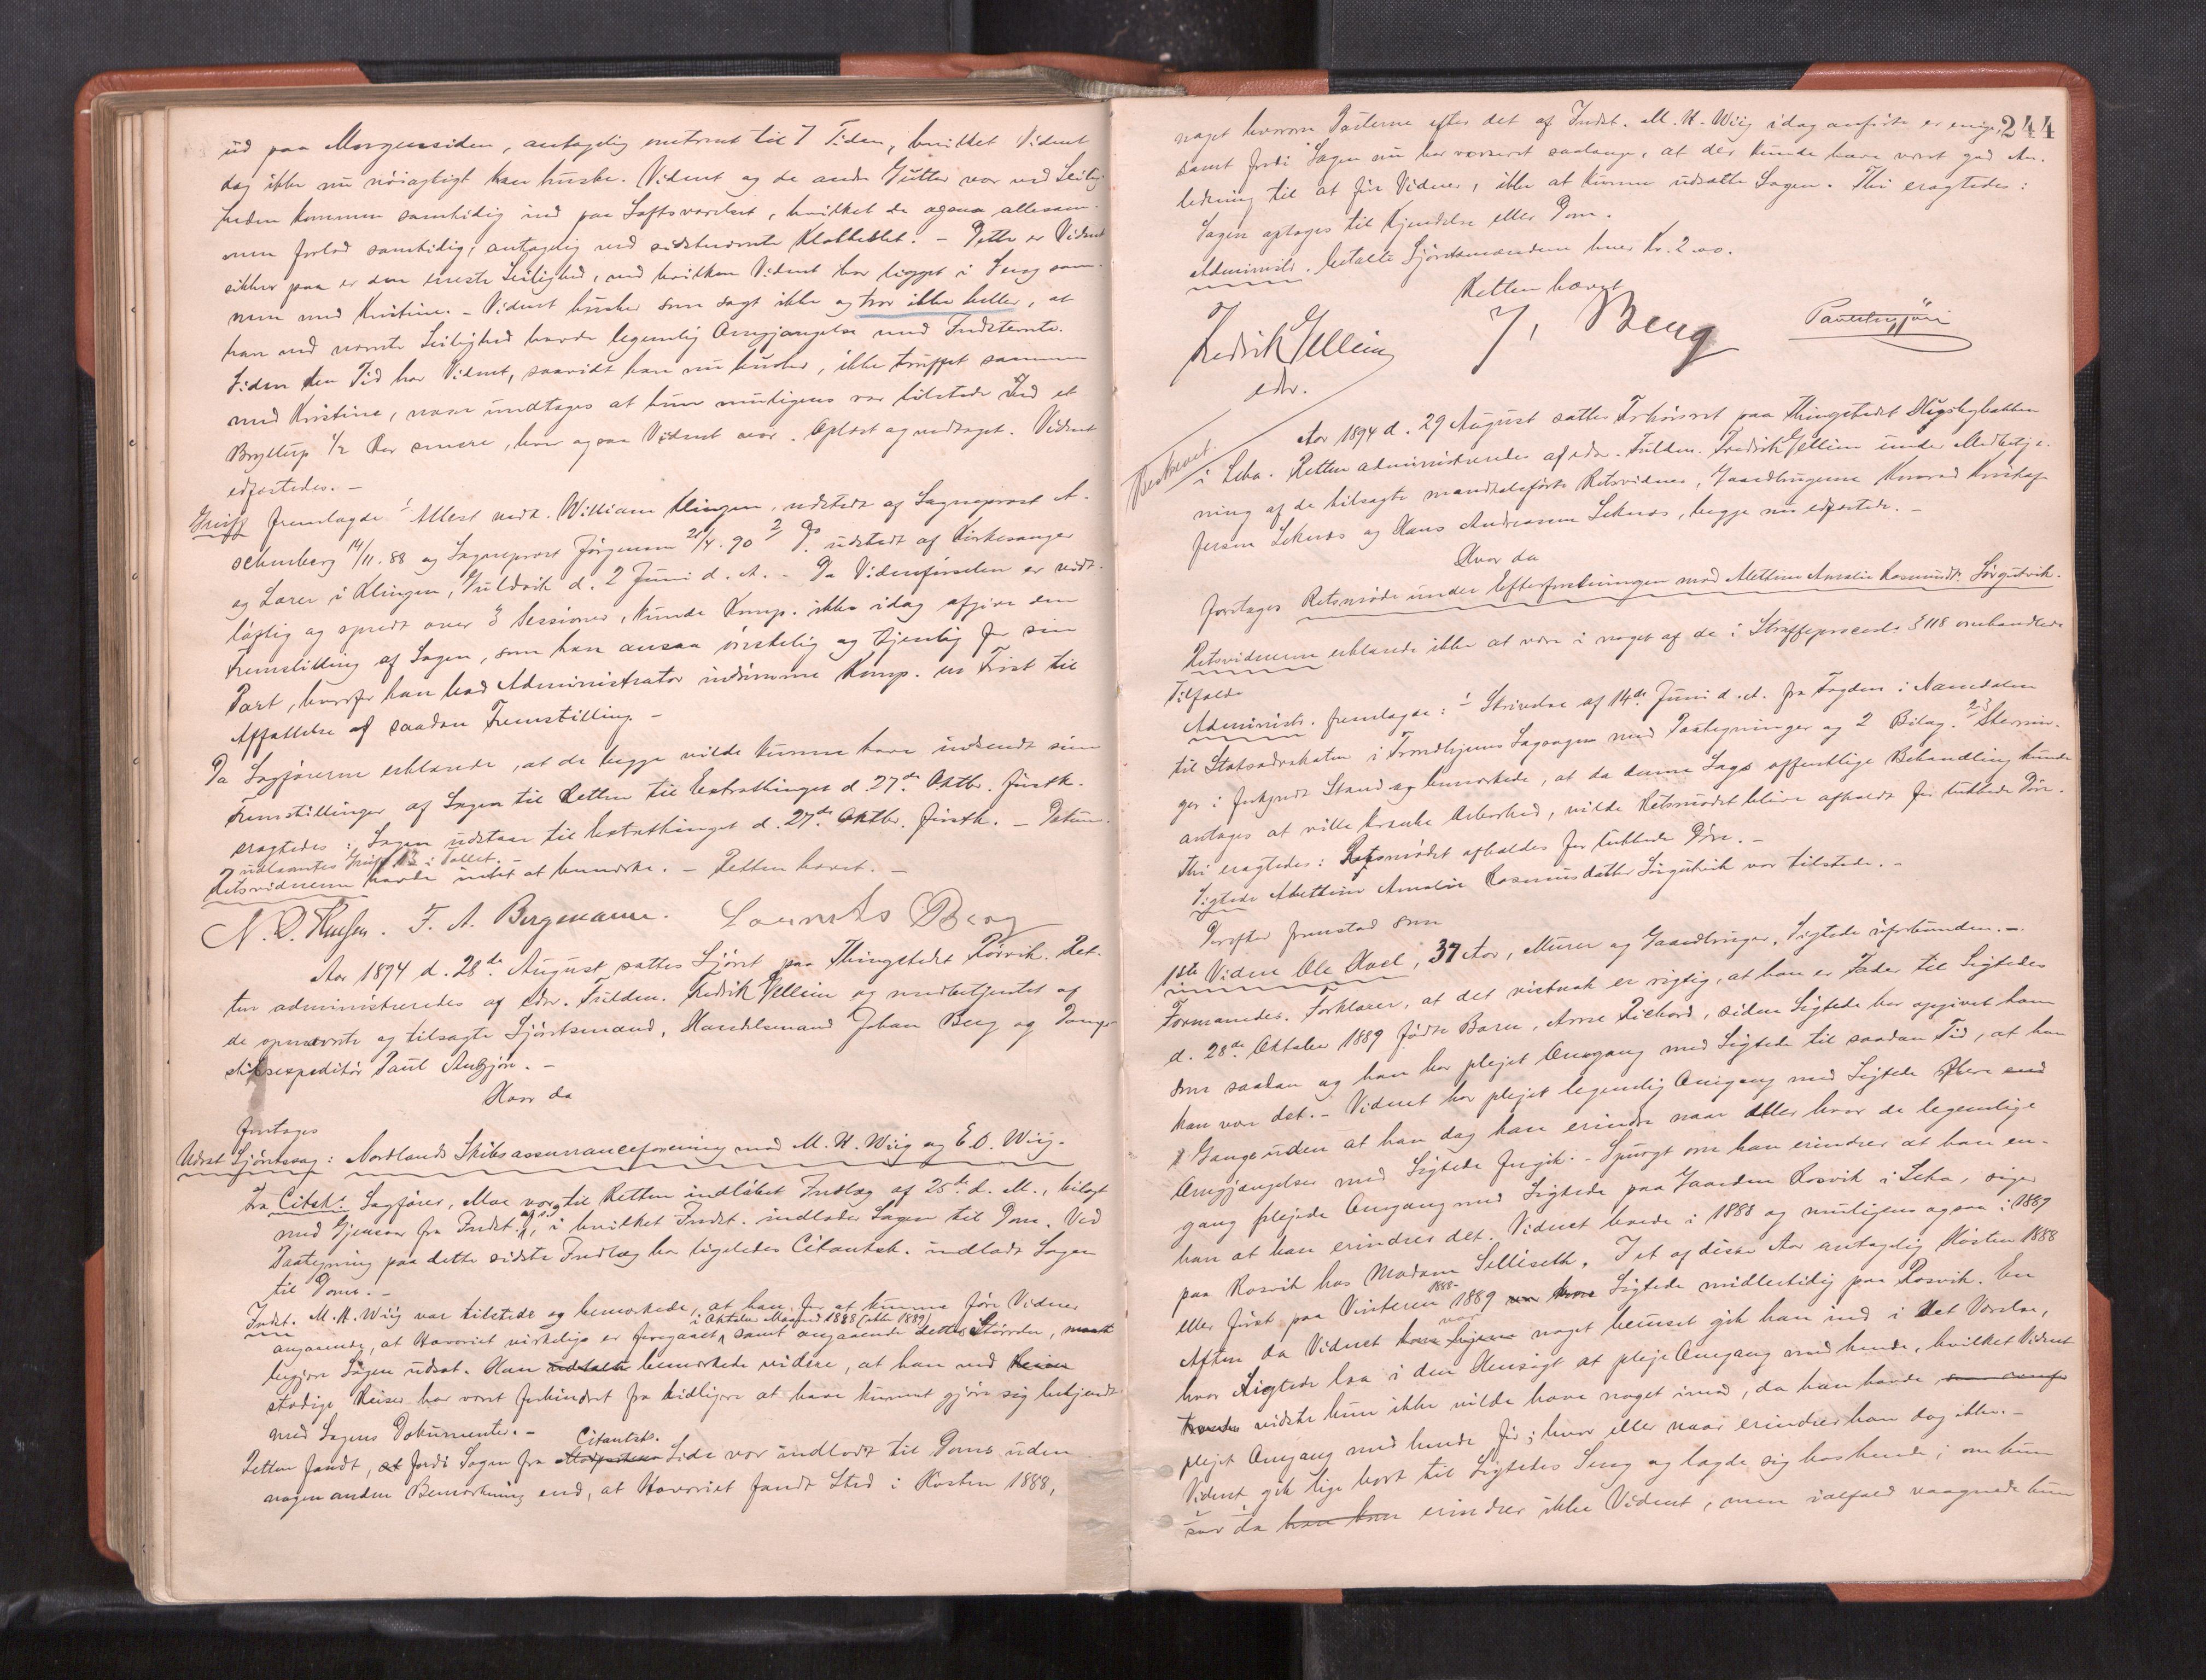 ud paa Morgensiden, antagelig omtrent til 7 Tiden, hvilket Vidnet
dog ikke nu nøiagtigt kan huske. Vidnet og de andre Gutter var ved Leilig-
heden kommen samtidig ind paa Loftsværelset, hvilket de ogsaa allesam-
men forlod samtidig, antagelig ved sidstnævnte Klokkeslet. – Dette er Vidnet
sikker paa er den eneste Leilighed, ved hvilken Vidnet har ligget i Seng sam-
men med Kristine. – Vidnet husker som sagt ikke og tror ikke heller, at
han ved nævnte Leilighed havde legemlig Omgjængelse med Indstevnte.
Siden den Tid har Vidnet, saavidt han nu husker, ikke truffet sammen
med Kristine, naar undtages at hun muligens var tilstede ved et
Bryllup ½ Aar senere, hvor ogsaa Vidnet var. Oplæst og vedtaget. Vidnet
edfæstedes. –
Grieff fremlagde 1 Attest vedk. William Klingen, udstedt af Sogneprest A.
Schenberg 14/11. 88 og Sogneprest Jørgensen 21/4. 90 2 Do. udstedt af Kirkesanger
og Lærer i Klingen, Guldvik d. 2 Juni d. A. – Da Vidneførselen er vidt-
løftig og spredt over 3 Sessioner, kunde Komp. ikke idag afgive den
Fremstilling af Sagen, som han ansaa ønskelig og tjenlig for sin
Part, hvorfor han bad Administrator indrømme Komp. en Frist til
Affattelse af saadan Fremstilling. –
Da Sagførerne erklærede, at de begge vilde kunne have indsendt sine
Fremstillinger af Sagen til Retten til Extrathinget d. 27de Oktbr. førstk.
eragtedes: Sagen udstaar til Extrathinget d. 27de Oktbr. førstk. –
Retsvidnerne havde intet at bemærke. – Retten hævet. –
F. A. Bergmann. Laurits Berg
Aar 1894 d. 28de August sattes Sjøret paa Thingstedet Rørvik. Ret-
ten administreredes af edsv. Fuldm. Fredrik Gellein og medbetjentet af
de opnævnte og tilsagte Sjøretsmænd, Handelsmand Johan Berg og Damp-
skibsexpeditør Paul Anzjøn. –
Hvor da
foretages
Udsat Sjøretssag: Nordlands Skibsassuranceforening mod M. H. Wiig og E. O. Wiig.
Fra Citsk.s Sagfører, Moe var til Retten indløbet Indlæg af 25de d. M., bilagt
med Gjensvar fra Indst., i hvilket Indst. indlader Sagen til Dom. Ved
Paategning paa dette sidste Indlæg har ligeledes Citantsk. indladt Sagen
til Doms. –
Indst. M. H. Wiig var tilstede og bemærkede, at han for at kunne føre Vidner
i Oktober Maaned 1888 (eller 1889)
angaaende, at Havariet virkelig er foregaaet, samt angaaende dettes Størrelse, maatte
begjære Sagen udsat. Han udtalte bemærkede videre, at han ved Reiser
stadige Reiser har været forhindret fra tidligere at have kunnet gjøre sig bekjendt
med Sagens Dokumenter. –
Citantsk.
Retten fandt, at fordi Sagen fra Modpartens Side var indladt til Doms uden
nogen anden Bemærkning end, at Havariet fandt Sted i Høsten 1888,
244
noget hvorom Parterne efter det af Indst. M. H. Wiig idag anførte er enige,
samt fordi Sagen nu har verseret saalænge, at der kunde have været god An-
ledning til at føre Vidner, ikke at kunne udsætte Sagen. Thi eragtedes:
Sagen optages til Kjendelse eller Dom.
Administr. betalte Sjøretsmændene hver Kr. 2.00.
Retten hævet
Fredrik Gellein J. Berg
edsv.
Beskrevet.
Aar 1894 d. 29 August sattes Forhørsret paa Thingstedet
i Leka. Retten administreredes af edsv. Fuldm. Fredrik Gellein under Medbetje-
ning af de tilsagte mandtalsførte Retsvidner, Gaardbrugerne Konrad Kristof-
fersen Leknes og Hans Andreassen Leknes, begge nu edfæstede. –
Hvor da
foretages Retsmøde under Efterforskningen mod Mettine Amalie Rasmusdt. Sørgutvik.
Retsvidnerne erklærede ikke at være i noget af de i Straffeprocesls. § 118 omhandlede
Tilfælde
Administr. fremlagde: 1 Skrivelse af 14de Juni d. A. fra Fogden i Namdalen
til Statsadvokaten i Trondhjems Lagsogn med Paategninger og 2 Bilag. 2-3 Stevnin-
ger i forkyndt Stand og bemærkede, at da denne Sags offentlige Behandling kunde
antages at ville krænke Ærbarhed, vilde Retsmødet blive afholdt for lukkede Døre.
Thi eragtedes: Retsmødet afholdes for lukkede Døre. –
Sigtede Mettine Amalie Rasmusdatter Sørgutvik var tilstede. –
Derefter fremstod som
1ste Vidne Ole Hoel, 37 Aar, Murer og Gaardbruger, Sigtede uforbunden. –
Formanedes. Forklarer, at det vistnok er rigtig, at han er Fader til Sigtedes
d. 28de Oktober 1889 fødte Barn, Arne Richard, siden Sigtede har opgivet ham
som saadan og han har plejet Omgang med Sigtede til saadan Tid, at han
kan være det. – Vidnet har plejet legemlig Omgang med Sigtede flere end
Gange uden at han dog kan erindre naar eller hvor de legemlige
Omgjængelser med Sigtede foregik. – Spurgt om han erindrer at han en-
gang plejede Omgang med Sigtede paa Gaarden Rosvik i Leka, siger
han at han erindrer det. Vidnet boede i 1888 og muligens ogsaa i 1889
paa Rosvik hos Madam Selliseth. I et af disse Aar antagelig Høsten 1888
1888-
eller først paa Vinteren 1889 var Sigtede midlertidig paa Rosvik. En
Aften da Vidnet var noget beruset gik han ind i det Værelse,
hvor Sigtede laa i den Hensigt at pleje Omgang med hende, hvilket Vidnet
troede vidste hun ikke vilde have noget imod, da han havde
plejet Omgang med hende før; hvor eller naar erindrer han dog ikke. –
Vidnet gik lige bort til Sigtedes Seng og lagde sig hos hende; om hun
sov da erindrer ikke Vidnet, men ialfald vaagnede hun